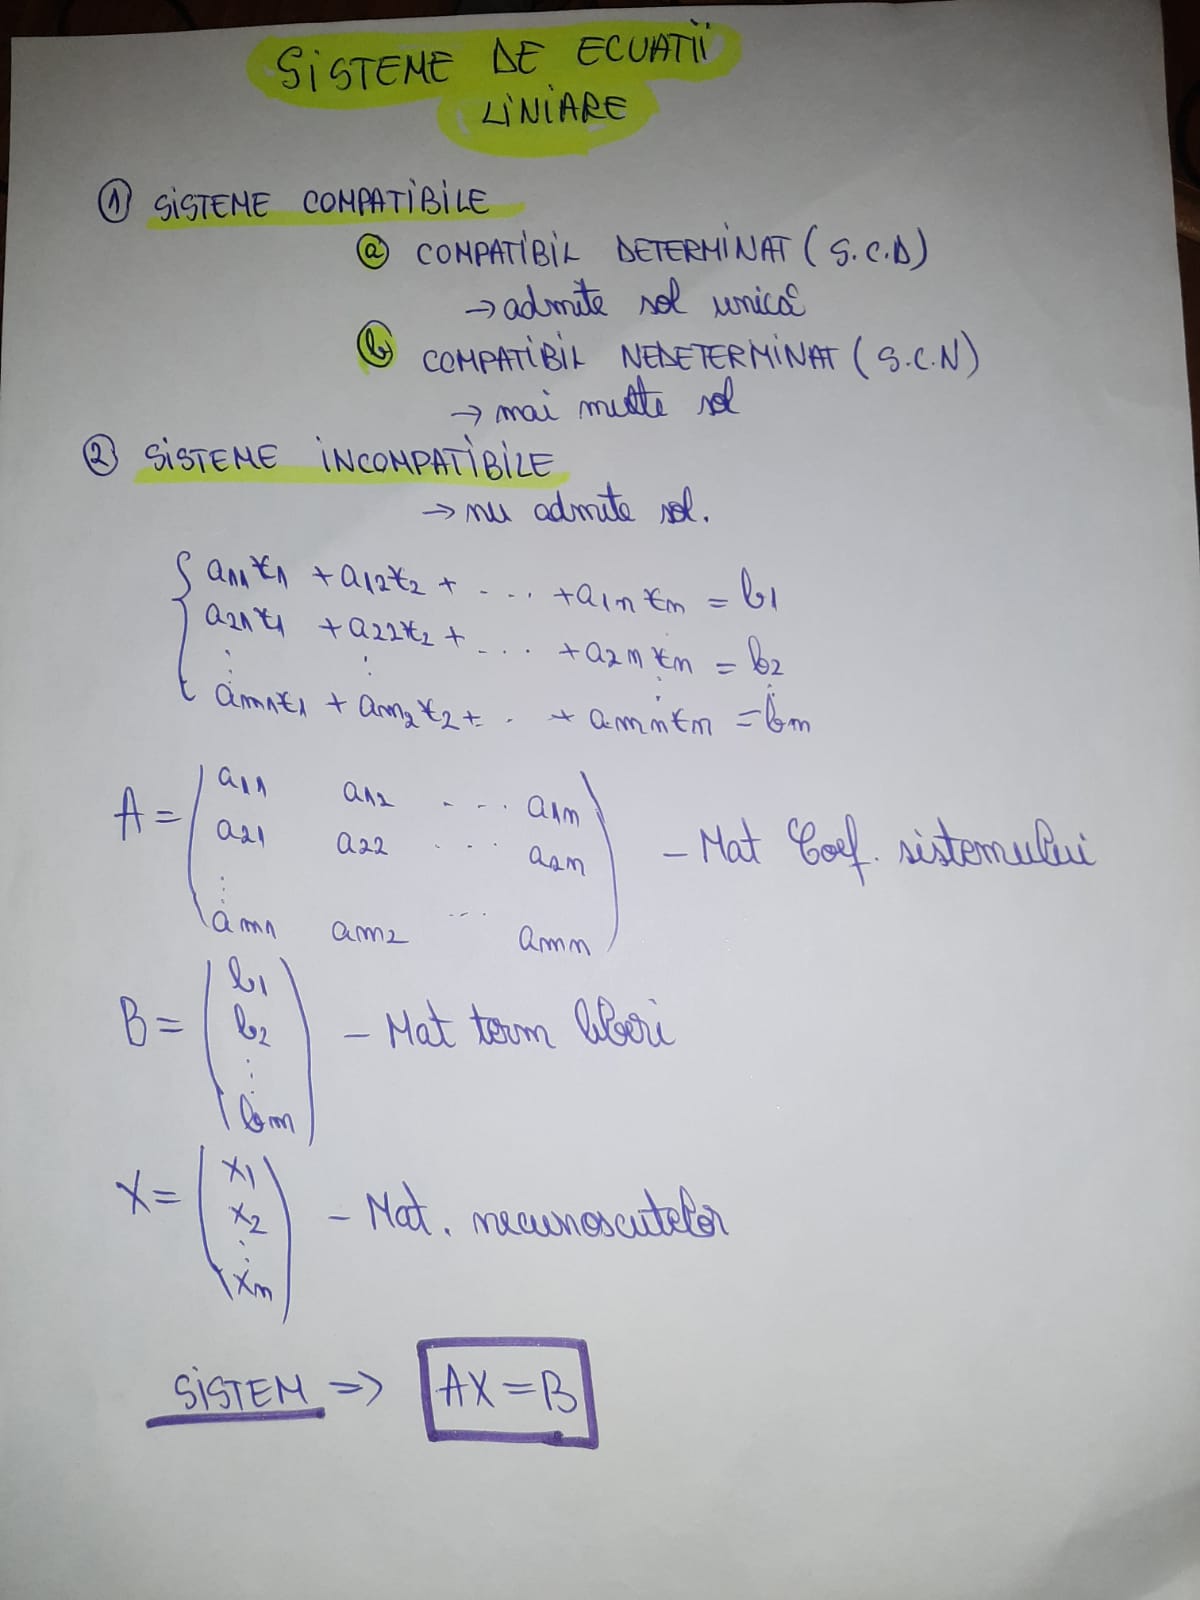 SISTEME DE ECUATII
LINIARE
① SISTEME COMPATIBILE
ⓐ COMPATIBIL DETERMINAT (S.C.D)
→ admite sol unică
ⓑ COMPATIBIL NEDETERMINAT (S.C.N)
→ mai multe sol
② SISTEME INCOMPATIBILE
→ nu admite sol.
{ a11x1 + a12x2 + .... + a1nxn = b1
a21x1 + a22x2 + .... + a2nxn = b2
⋮ ⋮ ⋮ ⋮
am1x1 + am2x2 + . + amnxn = bm
A = ( a11 a12 .... a1n
a21 a22 .... a2n ) - Mat Coef. sistemului
⋮
am1 am2 ... amn
B = ( b1
b2 ) - Mat term liberi
⋮
bm
X = ( x1
x2 ) - Mat. necunoscutelor
⋮
xn
SISTEM => AX = B